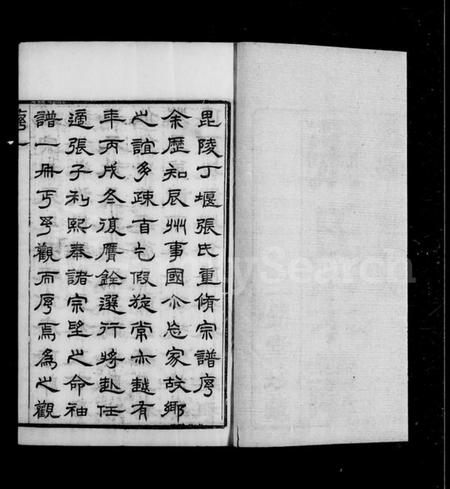 毘陵丁堰張氏重脩宗譜序
余歷知辰州事國尒忘家故鄉
之誼多疎首乞假旋常亦越有
年丙戌冬復膺銓選行將赴任
適張子利熙奉諸宗望之命袖
譜一冊丐予觀而序焉為之觀
序一